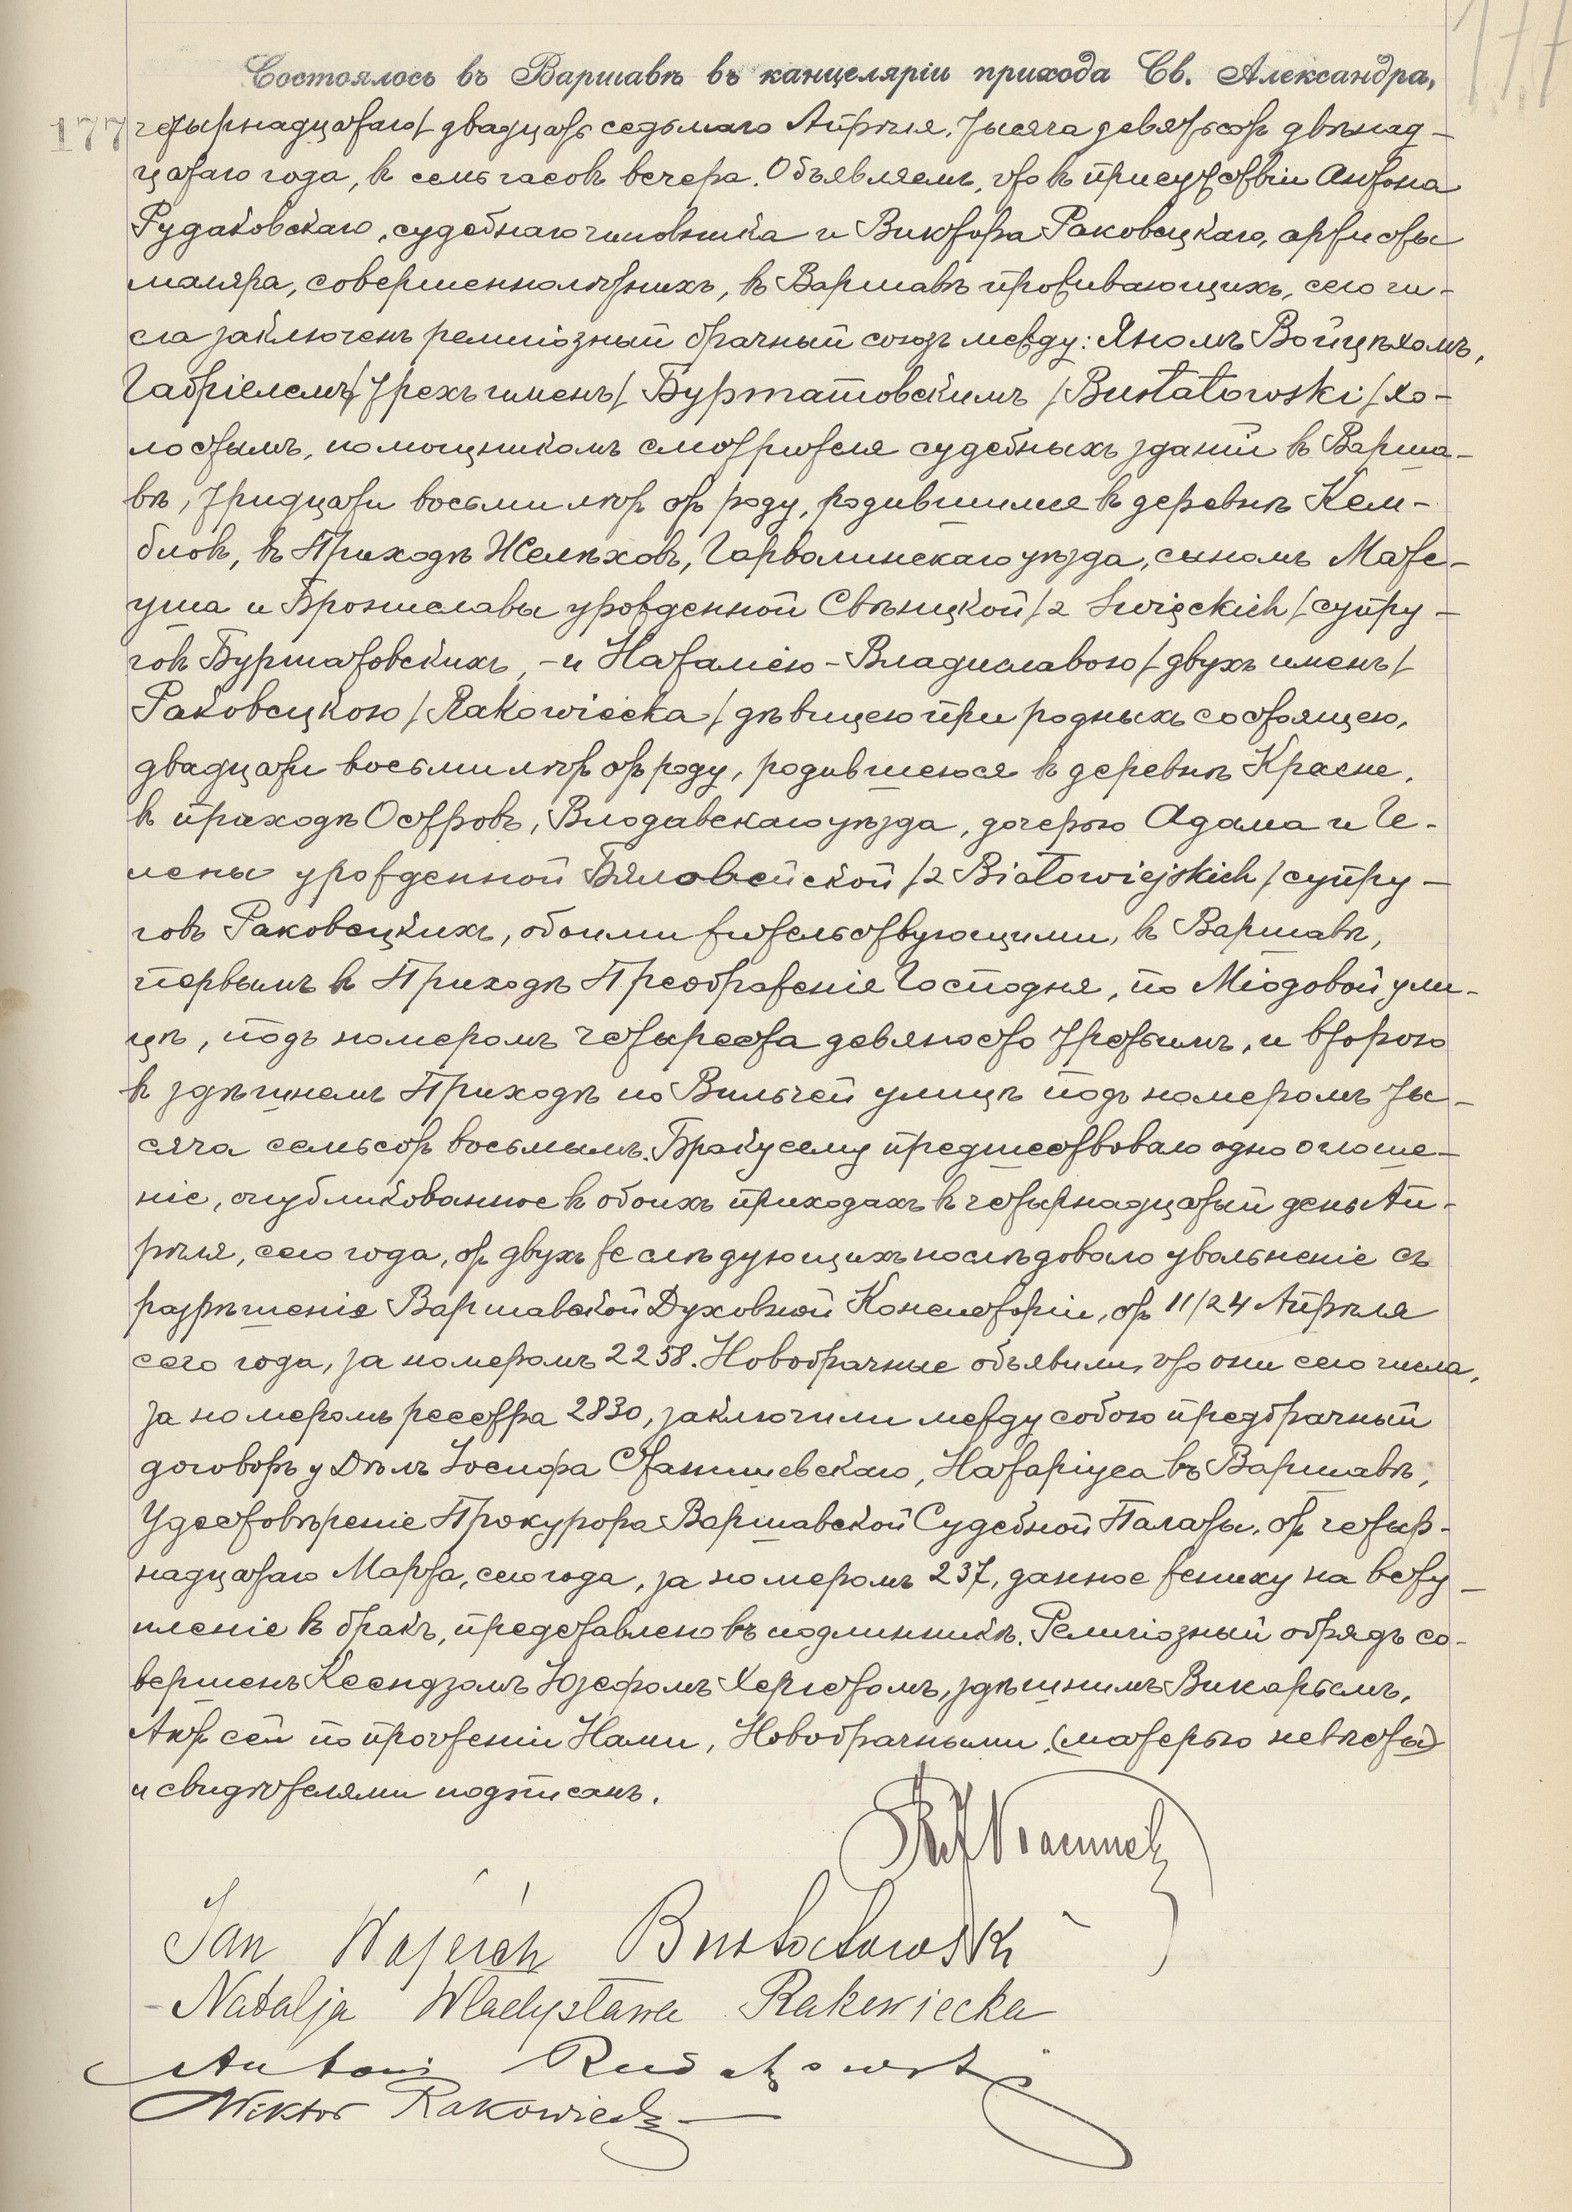 177
Состоялось въ Варшавѣ въ канцеляріи прихода Св. Александра,
177 четырнадцатаго/ двадцать седьмаго Апрѣля, тысяча девятьсотъ двѣнад-
цатаго года, въ семь часовъ вечера. Объявляемъ, что въ присутствіи Антона
Рудаковскаго, судебнаго чиновника и Виктора Раковецкаго, артисты
маляра, совершеннолѣтнихъ, въ Варшавѣ проживающихъ, сего чи-
сла заключенъ религіозный брачный союзъ между: Яномъ Войцѣхомъ,
Габріелемъ/ трехъ именъ/ Бурштатовскимъ /Bustatowski/ хо-
лостымъ, помощникомъ смотрителя судебныхъ зданій въ Варша-
вѣ, тридцати восьми лѣтъ отъ роду, родившимся въ деревнѣ Кем-
бловъ, въ Приходѣ Желѣховъ, Гарволинскаго уѣзда, сыномъ Мате-
уша и Брониславы урожденной Свѣнцкой /z Święckich/ супру-
говъ Бурштатовскихъ, - и Наталіею-Владиславою/ двухъ именъ/
Раковецкою /Rakowiecka/ дѣвицею при родныхъ состоящею,
двадцати восьми лѣтъ отъ роду, родившеюся въ деревнѣ Красне,
въ приходѣ Островъ, Влодавскаго уѣзда, дочерью Адама и Ге-
лены урожденной Бяловейской /z Białowiejskich/ супру-
говъ Раковецкихъ, обоими жительствующими, въ Варшавѣ,
первымъ въ Приходѣ Преображенія Господня, по Міодовой ули-
цѣ, подъ номеромъ четыреста девяносто третьимъ, и второю
въ здѣшнемъ Приходѣ по Вильчей улицѣ подъ номеромъ ты-
сяча семьсотъ восьмымъ. Браку сему предшествовало одно оглаше-
ніе, опубликованное въ обоихъ приходахъ въ четырнадцатый день Ап-
рѣля, сего года, отъ двухъ же слѣдующихъ послѣдовало увольненіе съ
разрѣшенія Варшавской Духовной Консисторіи, отъ 11/24 Апрѣля
сего года, за номеромъ 2258. Новобрачные объявили, что они сего числа,
за номеромъ реестра 2830, заключили между собою предбрачный
договоръ у Дѣлъ Іосифа Станишевскаго, Натаріуса въ Варшавѣ,
Удостовѣреніе Прокурора Варшавской Судебной Палаты, отъ четыр-
надцатаго Марта, сего года, за номеромъ 237, данное жениху на всту-
пленіе въ бракъ, представлено въ подлинникѣ. Религіозный обрядъ со-
вершенъ Ксендзомъ Юзефомъ Хергетомъ, здѣшнимъ Викаріемъ,
Актъ сей по прочтеніи Нами, Новобрачными, (матерью невѣсты)
и свидѣтелями подписанъ.
Jan Wojciech Bustatowski
Natalja Władysława Rakowiecka
Antoni Rudakowski
Wiktor Rakowiecki